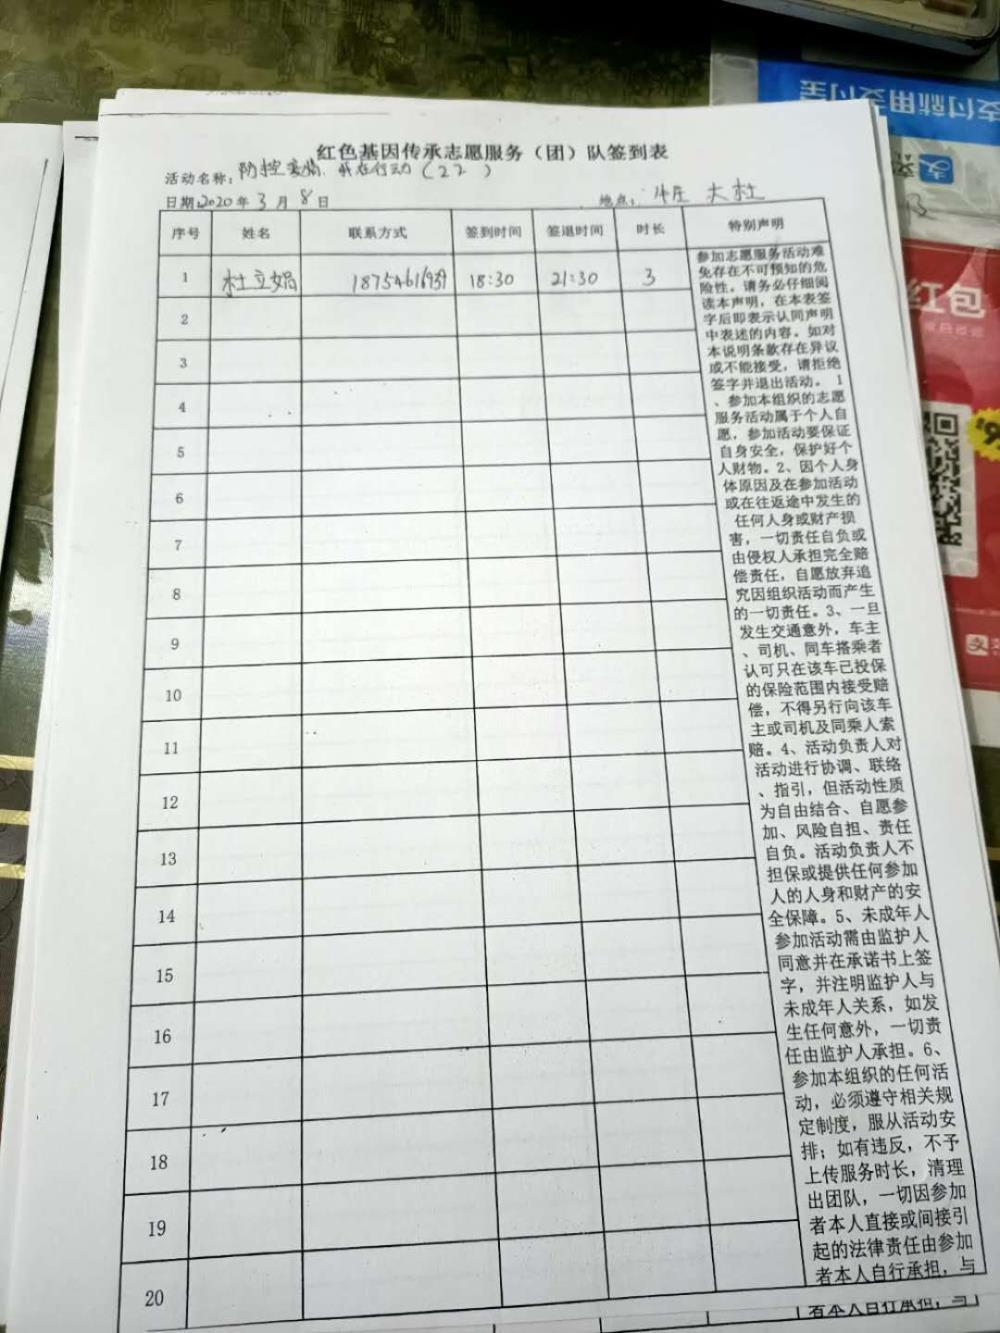 支付就用支付宝
红包
红色基因传承志愿服务（团）队签到表
活动名称：防控疫情，我在行动（22）
日期2020年3月8日 地点：牛庄 大杜
序号 姓名 联系方式 签到时间 签退时间 时长 特别声明
1 杜立娟 18:30 21:30 3
2
3
4
5
6
7
8
9
10
11
12
13
14
15
16
17
18
19
20
参加志愿服务活动难
免存在不可预知的危
险性。请务必仔细阅
读本声明，在本表签
字后即表示认同声明
中表述的内容。如对
本说明条款存在异议
或不能接受，请拒绝
签字并退出活动。1
、参加本组织的志愿
服务活动属于个人自
愿，参加活动要保证
自身安全，保护好个
人财物。2、因个人身
体原因及在参加活动
或在往返途中发生的
任何人身或财产损
害，一切责任自负或
由侵权人承担完全赔
偿责任，自愿放弃追
究因组织活动而产生
的一切责任。3、一旦
发生交通意外，车主
、司机、同车搭乘者
认可只在该车已投保
的保险范围内接受赔
偿，不得另行向该车
主或司机及同乘人索
赔。4、活动负责人对
活动进行协调、联络
、指引，但活动性质
为自由结合、自愿参
加、风险自担、责任
自负。活动负责人不
担保或提供任何参加
人的人身和财产的安
全保障。5、未成年人
参加活动需由监护人
同意并在承诺书上签
字，并注明监护人与
未成年人关系，如发
生任何意外，一切责
任由监护人承担。6、
参加本组织的任何活
动，必须遵守相关规
定制度，服从活动安
排；如有违反，不予
上传服务时长，清理
出团队，一切因参加
者本人直接或间接引
起的法律责任由参加
者本人自行承担，与
者本人自行承担，与